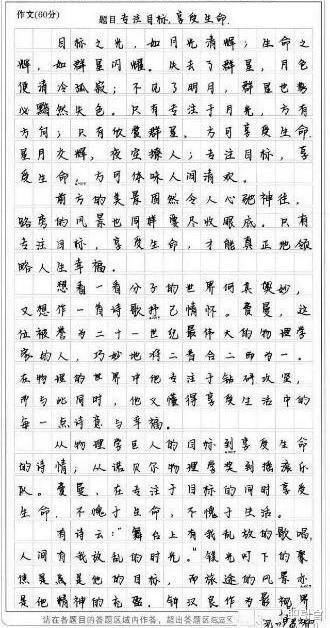 作文(60分)
题目 专注目标,享受生命.
目标之光,如月光清辉;生命之
辉,如群星闪耀。失去了群星,月色
便清冷孤寂;不见了明月,群星也势
必黯然失色。只有专注于月光,方有
方向;只有欣赏群星,方可享受生命.
星月交辉,夜空撩人;专注目标,享
受生命,方可体味人间清欢。
前方的美景固然令人心驰神往,
路旁的风景也同样要尽收眼底。只有
专注目标,享受生命,才能真正地领
略人生幸福。
想看一看分子的世界何其奥妙,
又想作一首诗歌抒己情怀。费曼,这
位被誉为二十一世纪最伟大的物理学
家的人,巧妙地将二者合二而为一。
在物理的世界中他专注于钻研攻坚,
而与此同时,他又懂得享受生活中的
每一点诗意与幸福。
从物理学巨人的目标到享受生命
的诗情;从诺贝尔物理学奖到摇滚乐
队。费曼,在专注于目标的同时享受
生命,不愧于生命,不愧于生活。
有诗云:“舞台上有我乱放的歌唱,
人间有我放乱的时光。”镁光灯下的聚
焦是点是他的目标,而旅途的风景亦
是他精神的充盈。钟汉良作为影视界
请在各题目的答题区域内作答,超出答题区